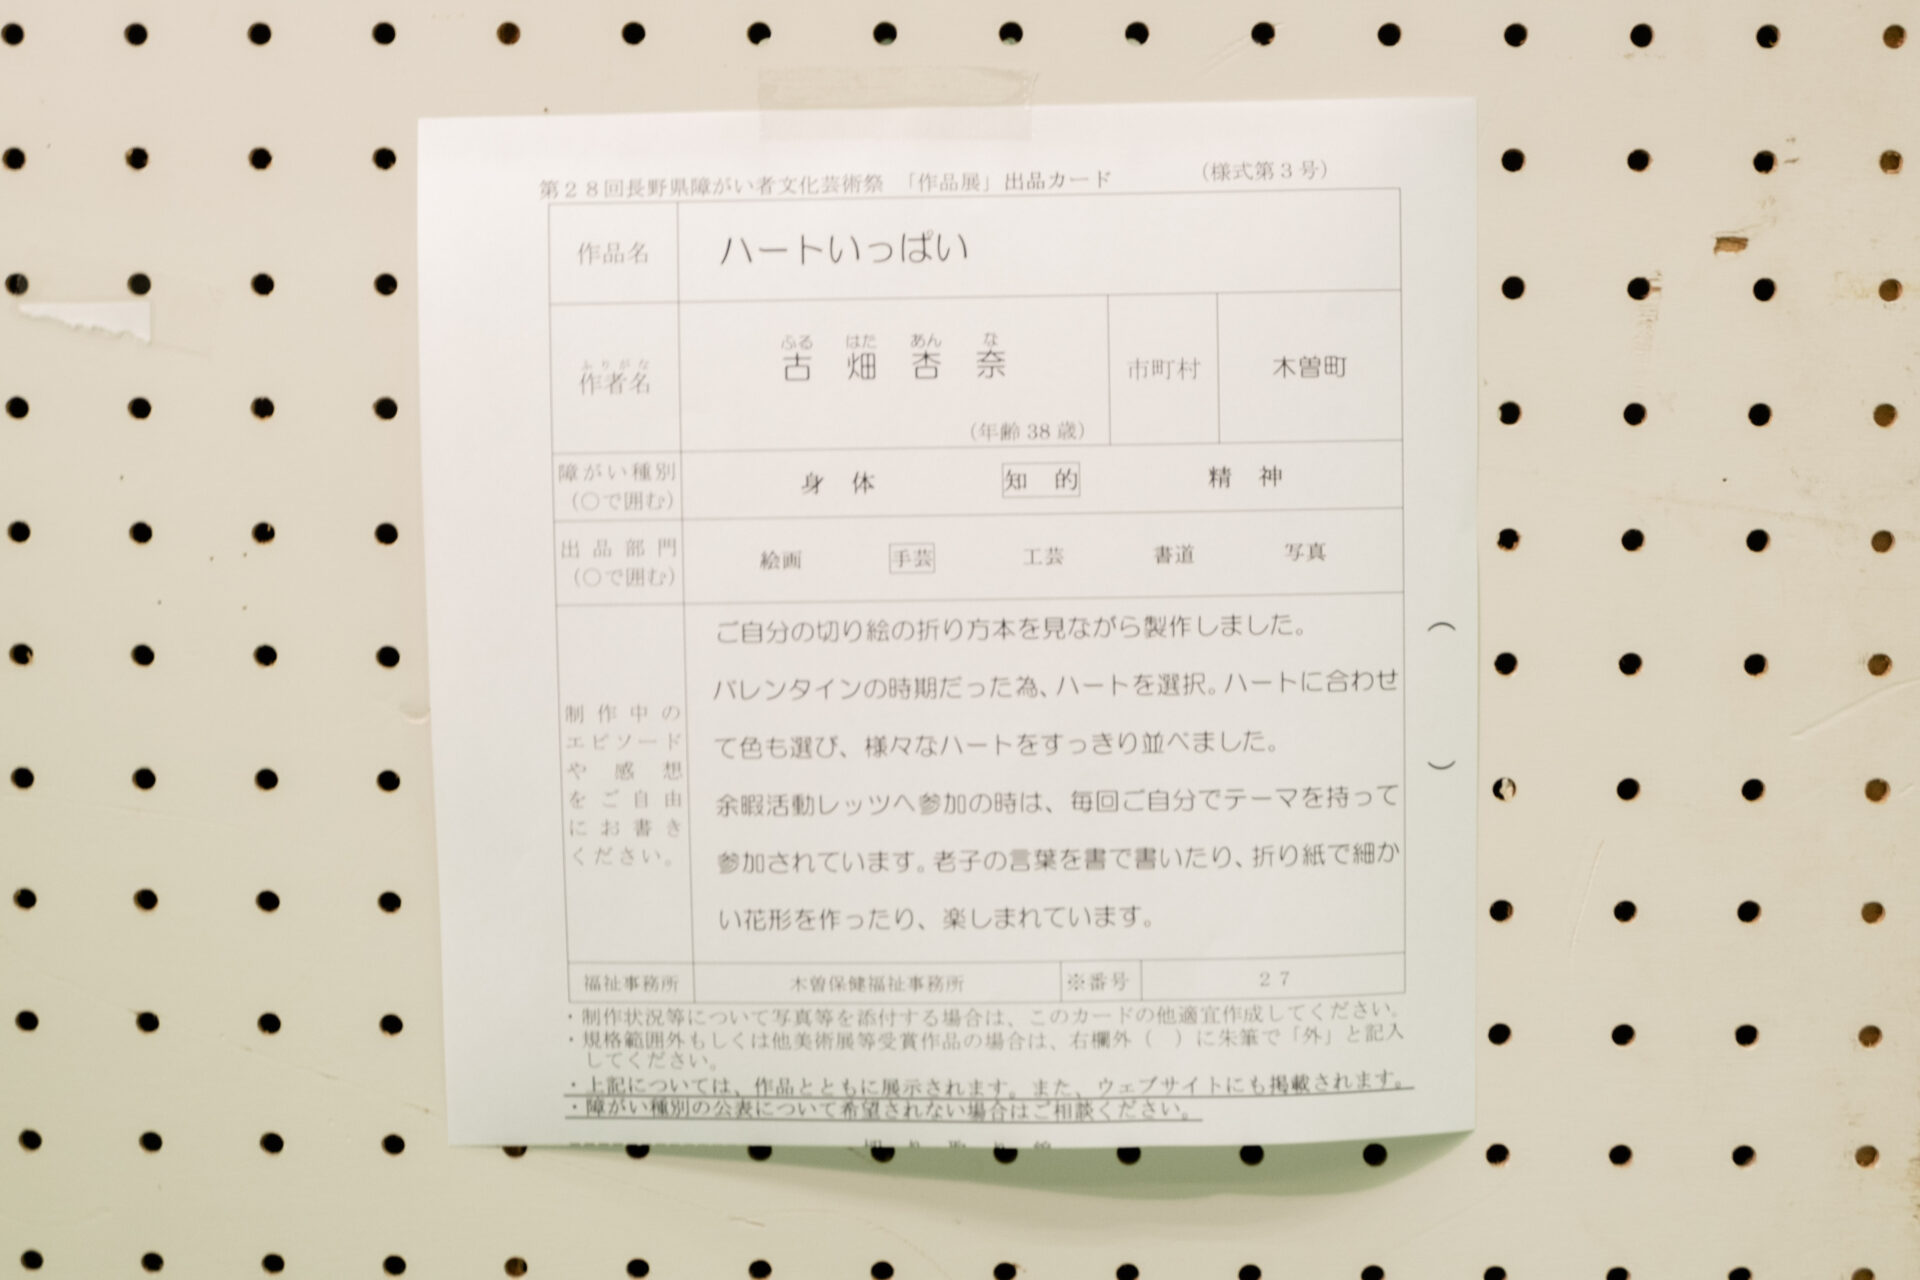 第28回長野県障がい者文化芸術祭 「作品展」出品カード (様式第3号)
作品名 ハートいっぱい
ふりがな ふる はた あん な
作者名 古 畑 杏 奈 市町村 木曽町
(年齢 38 歳)
障がい種別 身 体 知 的 精 神
(○で囲む)
出品部門 絵画 手芸 工芸 書道 写真
(○で囲む)
制作中の
エピソード
や感想
をご自由
にお書き
ください。
ご自分の切り絵の折り方本を見ながら製作しました。
バレンタインの時期だった為、ハートを選択。ハートに合わせ
て色も選び、様々なハートをすっきり並べました。
余暇活動レッツへ参加の時は、毎回ご自分でテーマを持って
参加されています。老子の言葉を書で書いたり、折り紙で細か
い花形を作ったり、楽しまれています。
( )
福祉事務所 木曽保健福祉事務所 ※番号 27
・制作状況等について写真等を添付する場合は、このカードの他適宜作成してください。
・規格範囲外もしくは他美術展等受賞作品の場合は、右欄外( )に朱筆で「外」と記入
してください。
・上記については、作品とともに展示されます。また、ウェブサイトにも掲載されます。
・障がい種別の公表について希望されない場合はご相談ください。